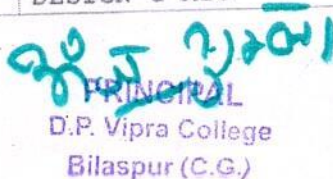 DESIGN &
PRINCIPAL
D.P. Vipra College
Bilaspur (C.G.)